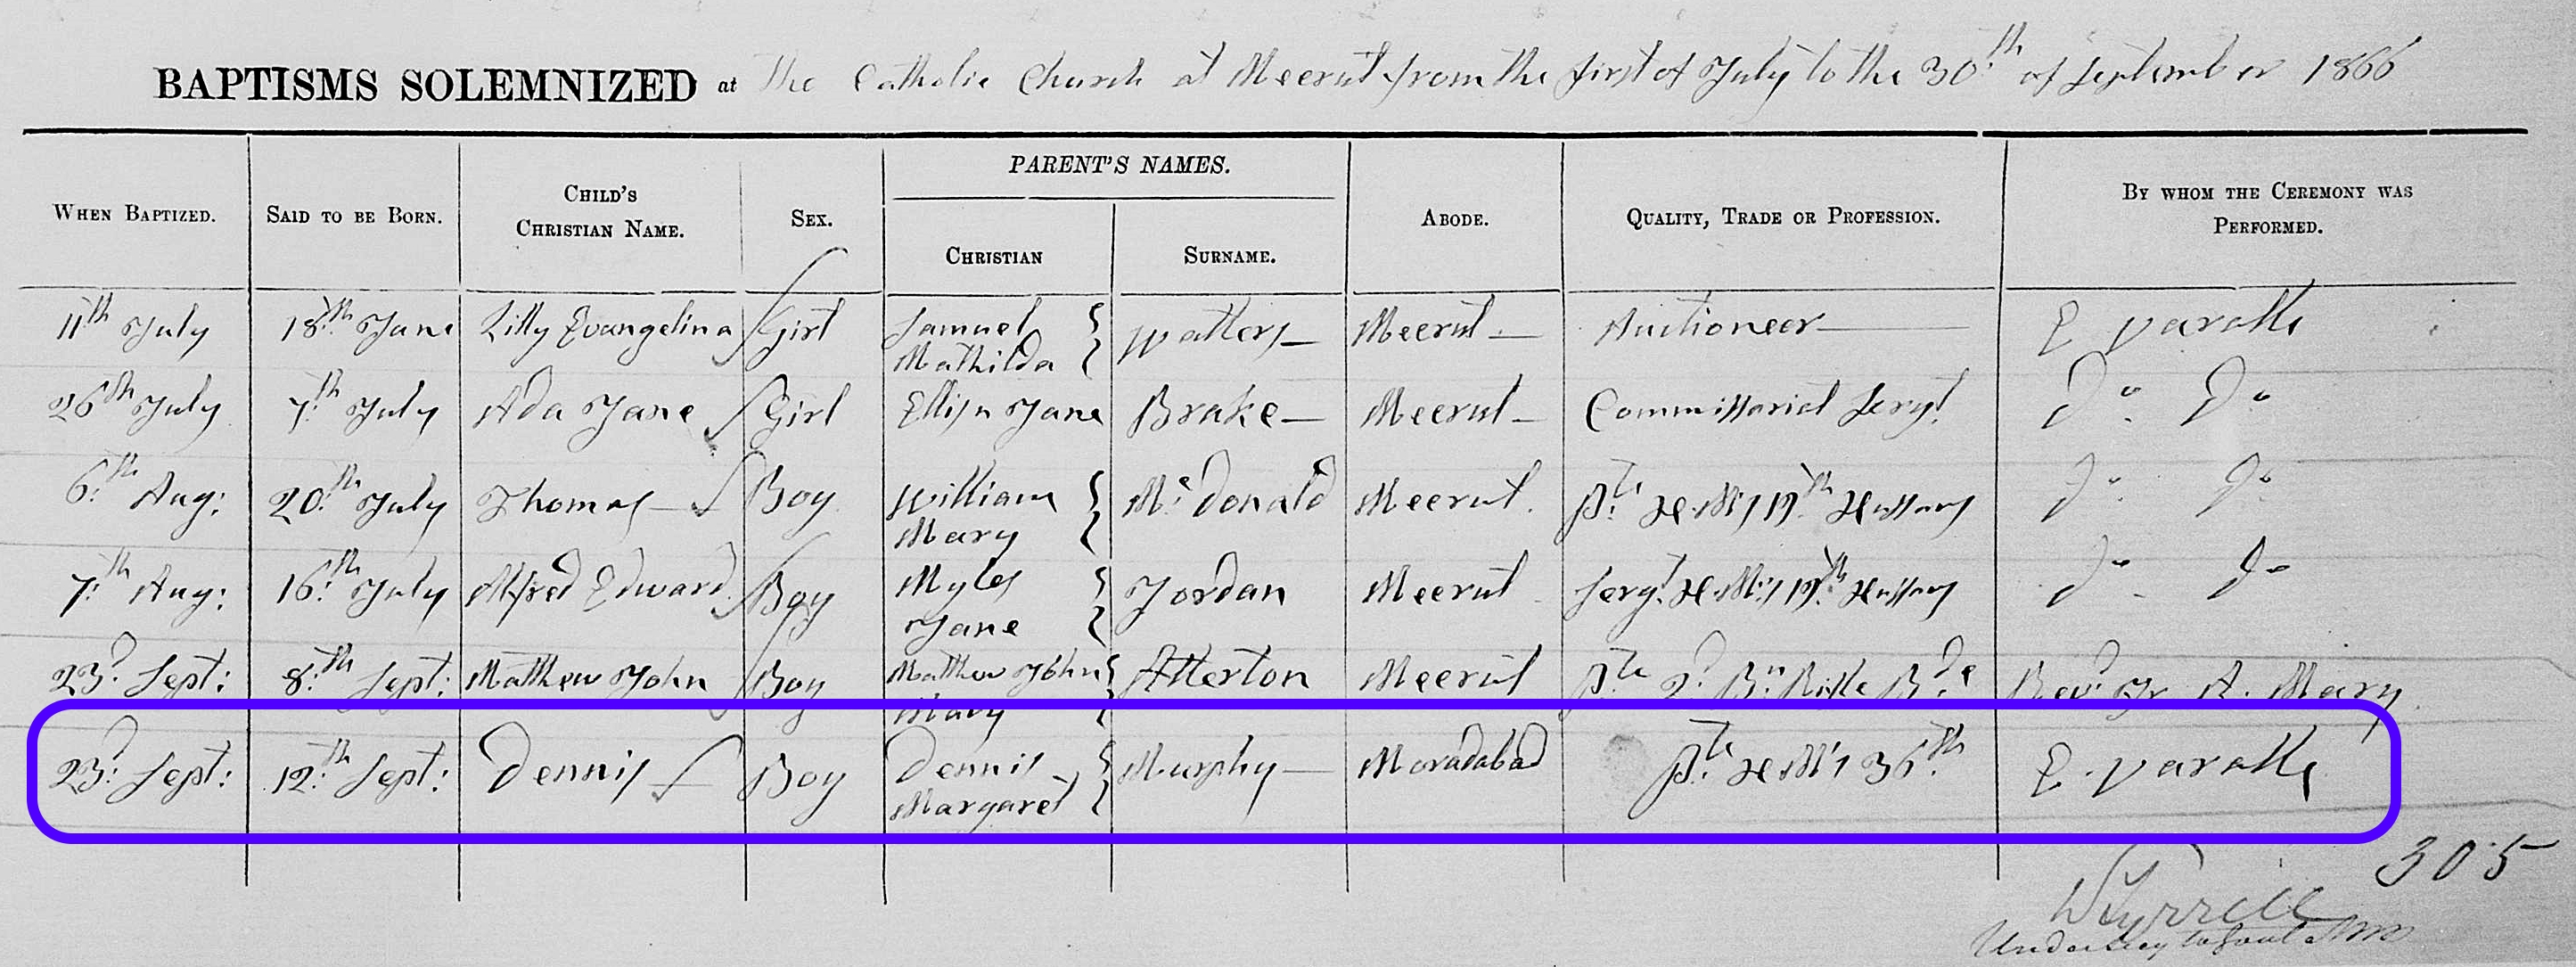 BAPTISMS SOLEMNIZED at The Catholic Church at Meerut from the first of July to the 30th of September 1866
PARENT'S NAMES.
WHEN BAPTIZED. SAID TO BE BORN. CHILD'S CHRISTIAN NAME. SEX. CHRISTIAN SURNAME. ABODE. QUALITY, TRADE OR PROFESSION. BY WHOM THE CEREMONY WAS PERFORMED.
11th July 18th June Lilly Evangelina Girl Samuel Mathilda Watters Meerut Auctioneer E
26th July 7th July Ada Jane Girl Jane Brake Meerut Commissariat Sergt. Do. Do.
6th Aug: 20th July Thomas Boy William Mary Mc.Donald Meerut. Pte. H.M's 19th Hussars Do. Do.
7th Aug: 16th July Alfred Edward Boy Myles Jane Jordan Meerut Sergt. H.M's 19th Hussars Do. Do.
23d. Sept: 8th Sept: Matthew John Boy Matthew John Mary Atterton Meerut Pte 2d. Bn Rifle Bde Revd. Fr. A. Mary
23d. Sept: 12th Sept: Dennis Boy Dennis Margaret Murphy Moradabad Pte. H.M's 36th. E.
305